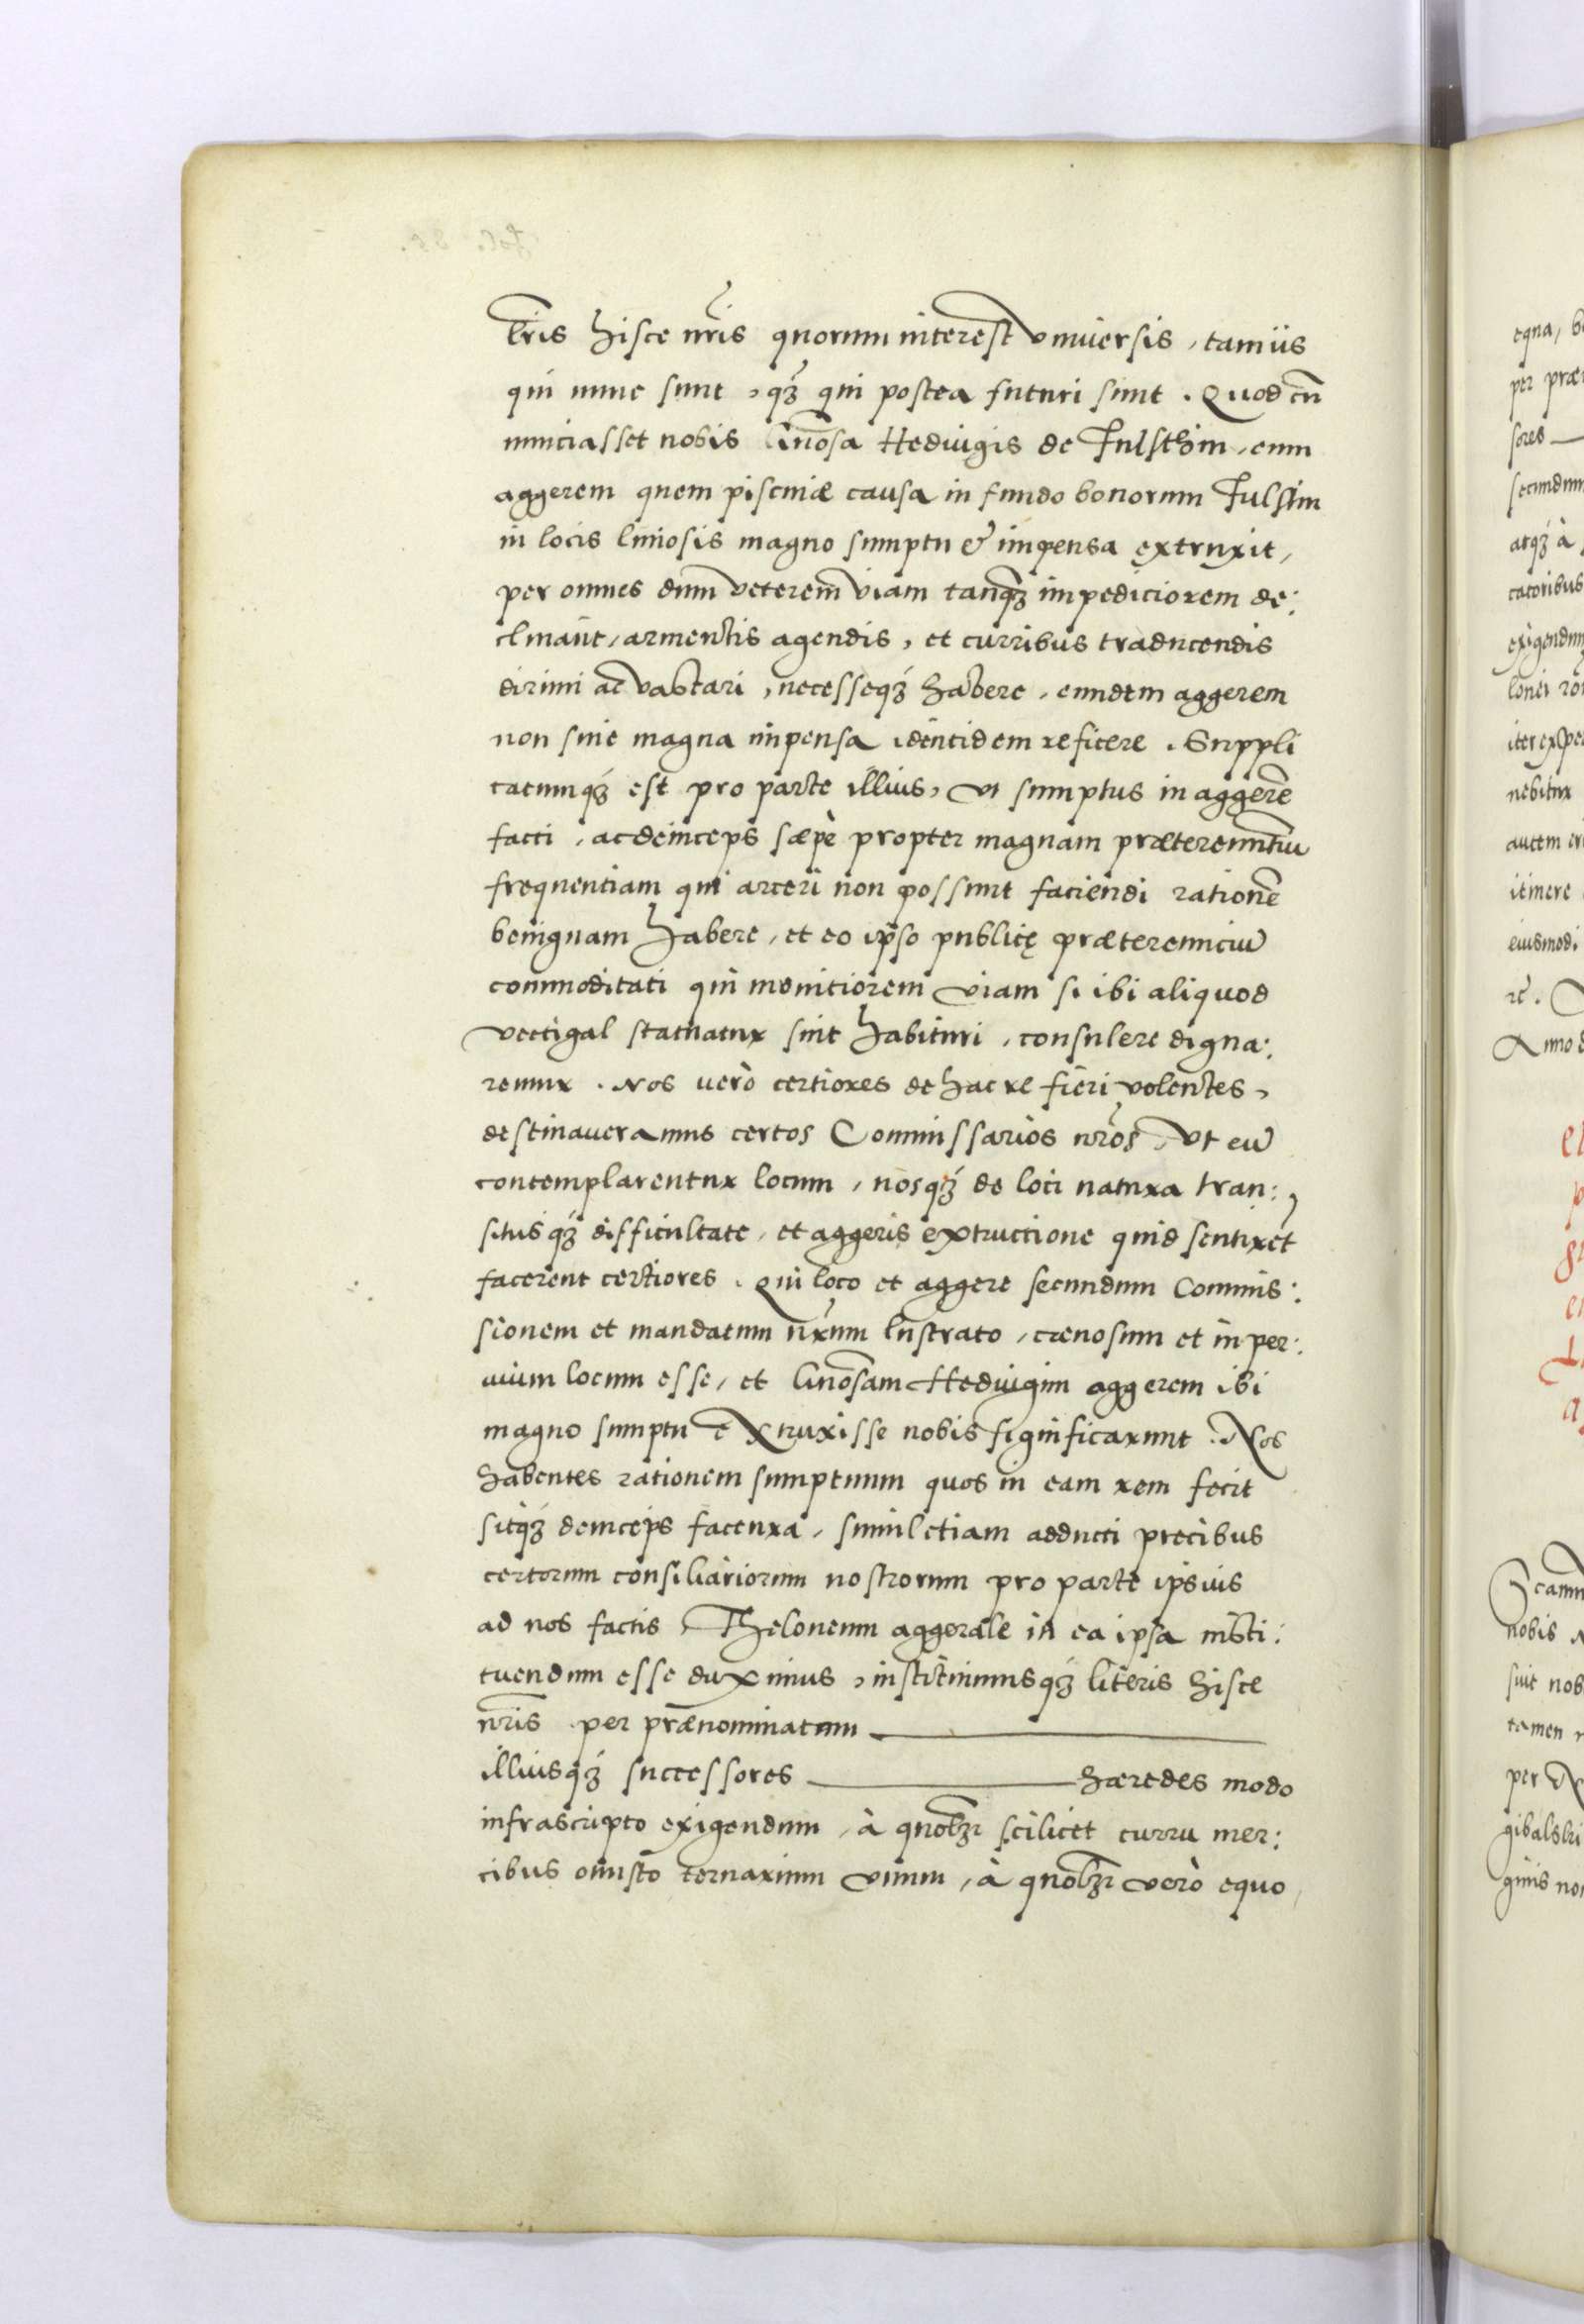 lr̃is hisce nr̃is quorum interest vniuersis, tam iis
qui nunc sunt, qꝫ qui postea futuri sunt. Quod cũ
nunciasset nobis Gñosa Heduigis de Fulsthin, eum
aggerem quem piscinæ causa in fundo bonorum Fulstin
in locis limosis magno sumptu & impensa extruxit,
per omnes dum veterem viam tanqꝫ impeditiorem de:
clinãt, armentis agendis, et curribus traducendis
dirimi ac vastari, necesseqꝫ habere, eundem aggerem
non sine magna impensa identidem reficere. Suppli
catumqꝫ est pro parte illius, vt sumptus in aggerẽ
facti, ac deinceps sæpè propter magnam prætereuntiũ
frequentiam qui arceri non possunt faciendi rationẽ
benignam habere, et eo ipso publicę prætereunciũ
commoditati qui monitiorem viam si ibi aliquod
vectigal statuatur sint habituri, consulere digna:
remur. Nos uerò certiores de hac re fieri volentes,
destinaueramus certos Commissarios nr̃os, vt eũ
contemplarentur locum, nosqꝫ de loci natura tran:
situsqꝫ difficultate, et aggeris extructione quid sentirẽt
facerent certiores. Qui loco et aggere secundum Commis:
sionem et mandatum nr̃um lustrato, cænosum et in per:
uium locum esse, et Gñosam Heduigim aggerem ibi
magno sumptu extruxisse nobis significarunt. Nos
habentes rationem sumptuum quos in eam rem fecit
sitqꝫ deinceps factura, simul etiam adducti precibus
certorum consiliariorum nostrorum pro parte ipsius
ad nos factis, Theloneum aggerale in ea ipsa insti:
tuendum esse duximus, instituimusqꝫ literis hisce
nr̃is per prænominatum
illiusqꝫ successores hæredes modo
infrascripto exigendum, à quolꝫ scilicet curru mer:
cibus onusto ternarium vnum, à quolꝫ verò equo